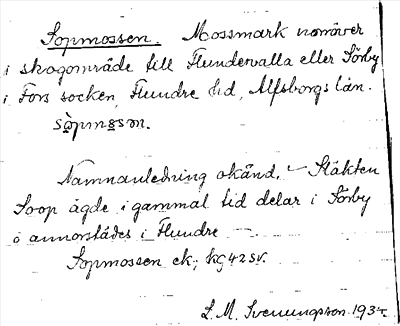 Sopmossen. Mossmark norröver
i skogområde till Flundervalla eller Sörby
i Fors socken, Flundre hd, Älfsborgs län.
sòpmɷsən.
Namnanledning okänd. – Släkten
Soop ägde i gammal tid delar i Sörby
o annorstädes i Flundre –
Sopmossen ek; kg 42 sv.
L. M. Svenungson 1934